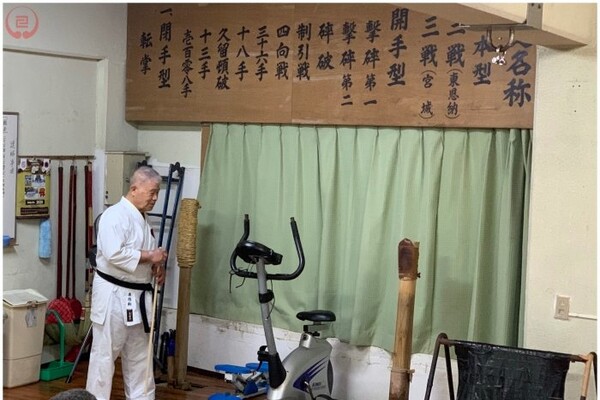 名称
本型
三戦（東恩納）
三戦（宮城）
開手型
撃砕第一
撃砕第二
砕破
制引戦
四向戦
三十六手
十八手
久留頓破
十三手
壱百零八手
一、閉手型
転掌